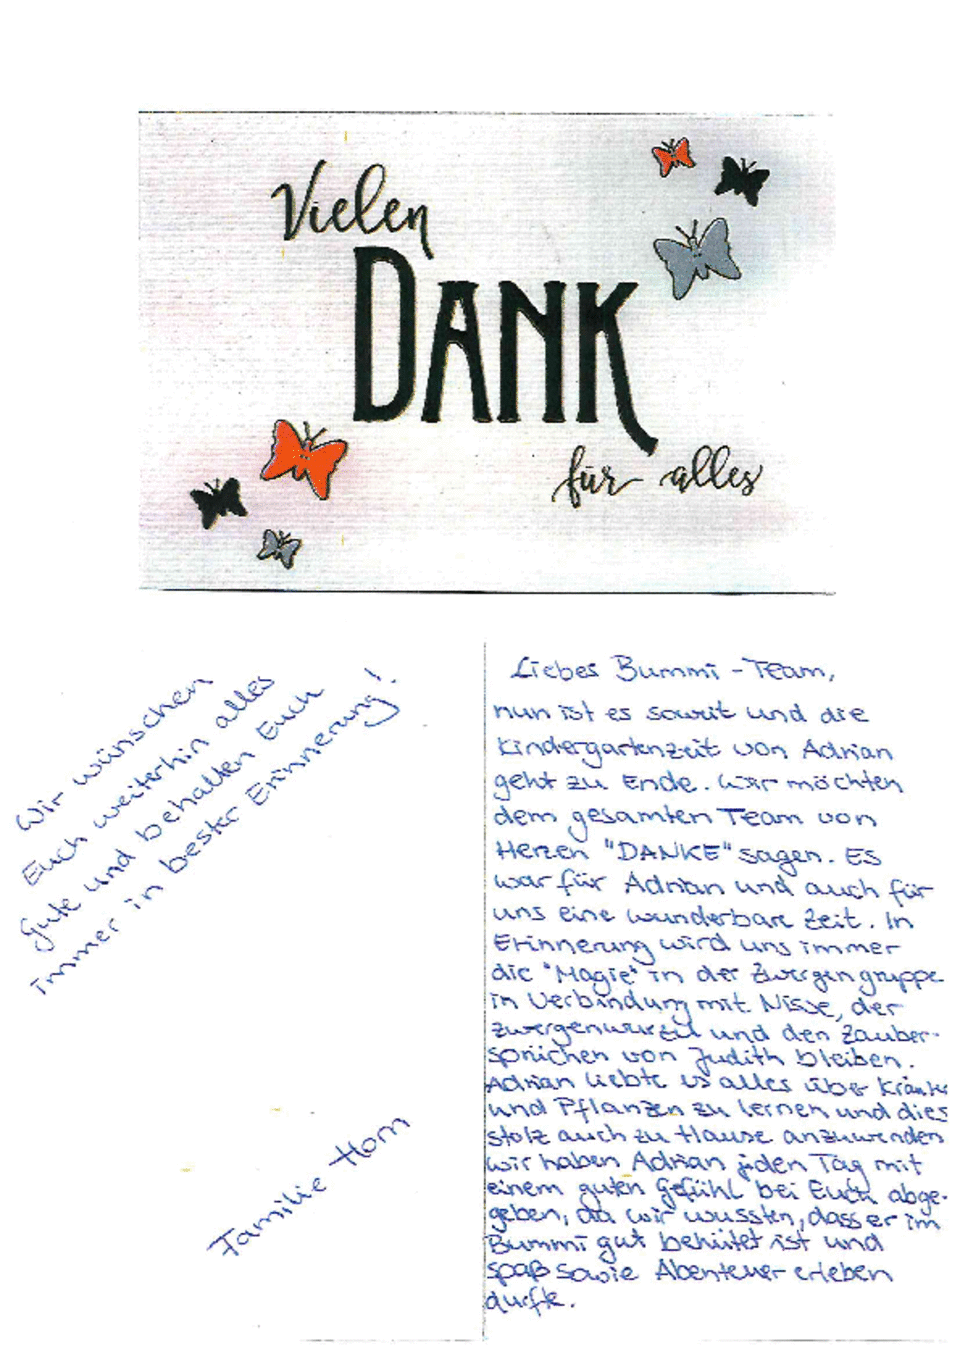 Vielen
DANK
für alles
Liebes Bummi-Team,
nun ist es soweit und die
Kindergartenzeit von Adrian
geht zu Ende. Wir möchten
dem gesamten Team von
Herzen "DANKE" sagen. Es
war für Adrian und auch für
uns eine wunderbare Zeit. In
Erinnerung wird uns immer
die "Magie" in der Zwergengruppe
in Verbindung mit Nisse, der
Zwergenwurzel und den Zauber-
sprüchen von Judith bleiben.
Adrian liebte es alles über Kräuter
und Pflanzen zu lernen und dies
stolz auch zu Hause anzuwenden
wir haben Adrian jeden Tag mit
einem guten Gefühl bei Euch abge-
geben, da wir wussten, dass er im
Bummi gut behütet ist und
Spaß sowie Abenteuer erleben
durfte.
Wir wünschen
Euch weiterhin alles
Gute und behalten Euch
immer in bester Erinnerung!
Familie Horn